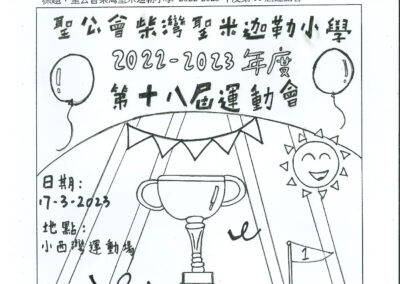 聖公會柴灣聖米迦勒小學
2022-2023年度
第十八屆運動會
日期:
17-3-2023
地點:
小西灣運動場
1